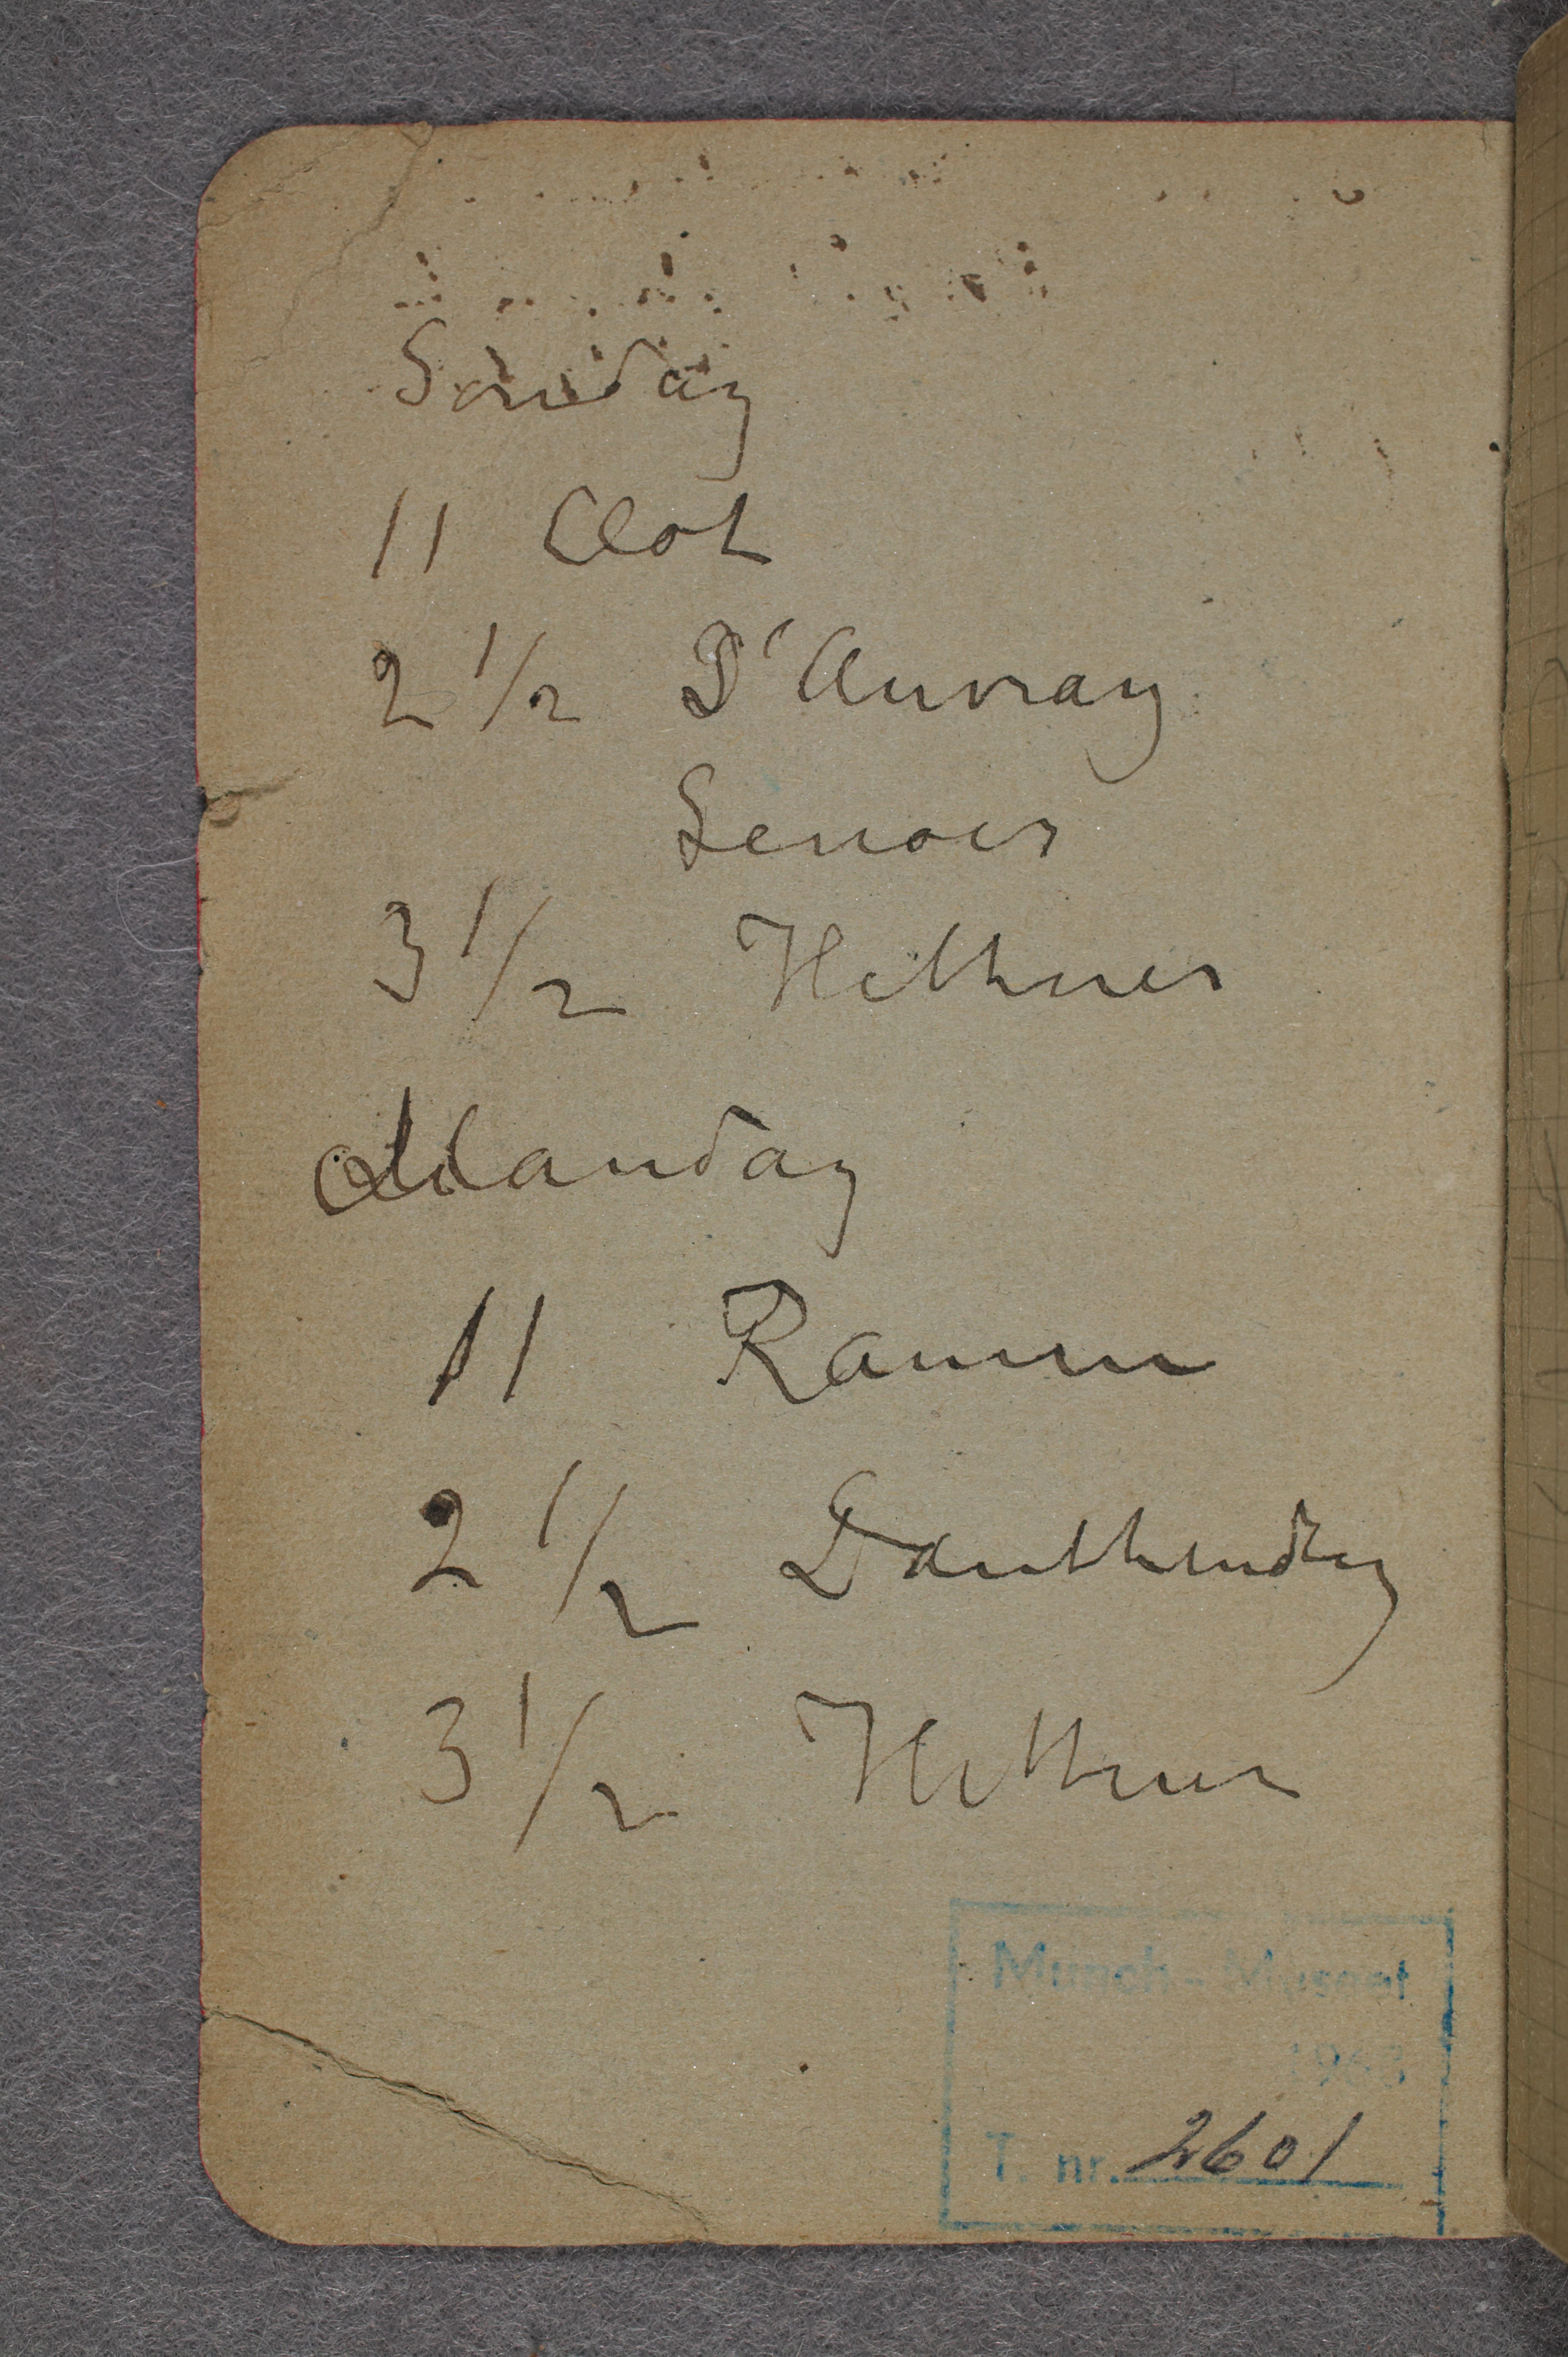 Sonday
11 Clot
2 1/2 D'Auvray
Lenoir
3 1/2 Hettner
Manday
11 Ramm
2 1/2 Dauthendey
3 1/2 Hettner
Munch-Museet
1963
T. nr. 2601